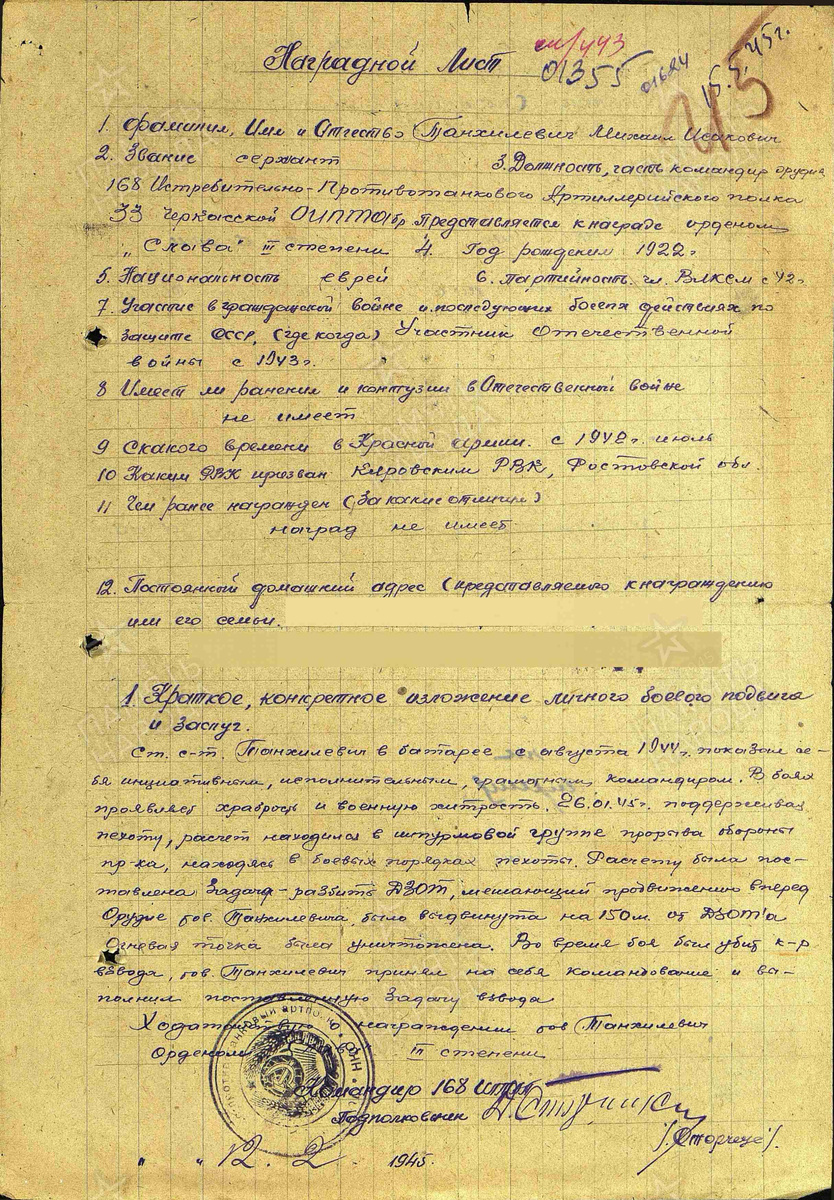 Наградной Лист
01355
1. Фамилия, Имя и Отчество Танхилевич Михаил Исакович
2. Звание сержант 3. Должность, часть командир орудия
168 Истребительно-Противотанкового Артиллерийского полка
33 Черкасской ОИПТАбр Представляется к награде орденом
"Слава" III степени 4. Год рождения 1922 г.
5. Национальность еврей 6. Партийность чл. ВЛКСМ с 42г
7. Участие в гражданской войне и последующих боевых действиях по
защите СССР, (где когда) Участник Отечественной
войны с 1943г.
8 Имеет ли ранения и контузии в Отечественной войне
не имеет
9 С какого времени в Красной армии. с 1942г. июль
10 Каким РВК призван Кировским РВК, Ростовской обл.
11 Чем ранее награжден (За какие отличия)
наград не имеет
12. Постоянный домашний адрес (представляемого к награждению
или его семьи.
1. Краткое, конкретное изложение личного боевого подвига
и заслуг.
Ст. с-т. Танхилевич в батарее с августа 1944г. показал се-
бя инциативным, исполнительным, грамотным командиром. В боях
проявляет храбрость и военную хитрость. 26.01.45г. поддерживая
пехоту, расчет находился в штурмовой группе прорыва обороны
пр-ка, находясь в боевых порядках пехоты. Расчету была пос-
тавлена Задача - разбить ДЗОТ, мешающий продвижению вперед
Орудие тов. Танхилевича было выдвинута на 150 м. от ДЗОТ'а
Огневая точка была уничтожена. Во время боя был убит к-р
взвода, тов. Танхилевич принял на себя командование и вы-
полнил поставленную Задачу взвода
награждении тов Танхилевич
Орденом III степени
Командир 168 иптап
Подполковник
12. 2 1945.